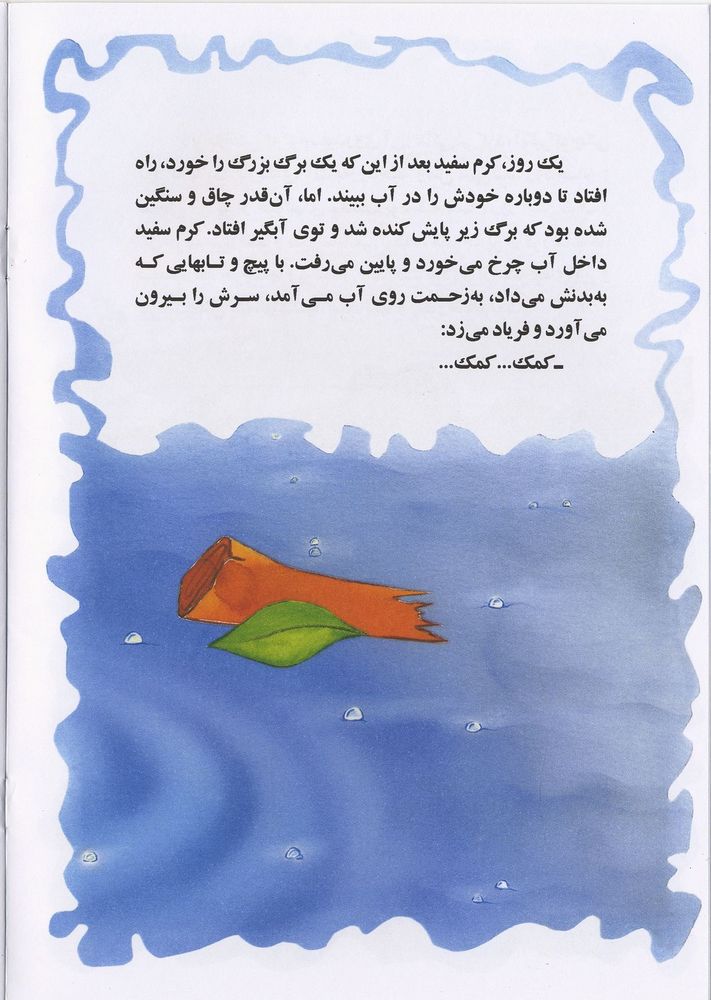 یک روز، کرم سفید بعد از این که یک برگ بزرگ را خورد، راه
افتاد تا دوباره خودش را در آب ببیند. اما، آن‌قدر چاق و سنگین
شده بود که برگ زیر پایش کنده شد و توی آبگیر افتاد. کرم سفید
داخل آب چرخ می‌خورد و پایین می‌رفت. با پیچ و تـابهایی کـه
به‌بدنش می‌داد، به‌زحـمت روی آب مـی‌آمد، سـرش را بـیرون
می‌آورد و فریاد می‌زد:
ـ کمک... کمک...